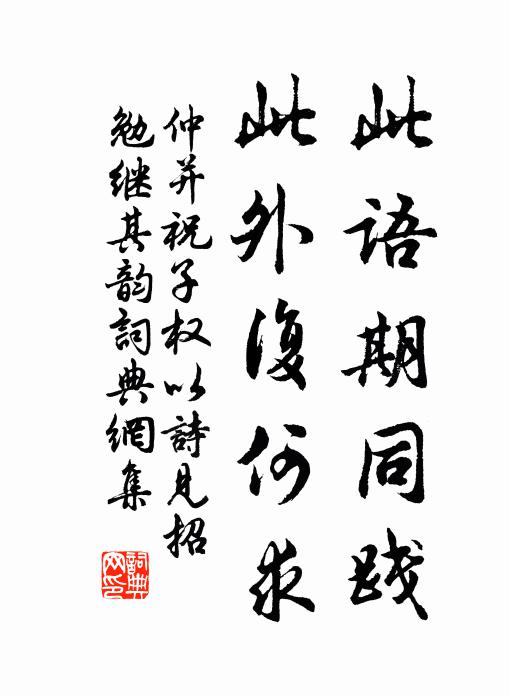 此语期同践
此外復何求
仲并祝子权以詩見招
勉继其韵詞典網集
詞典网印